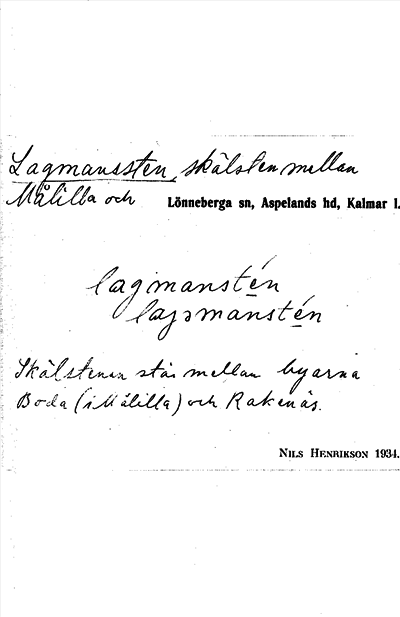 Lagmanssten, skälsten mellan
Målilla och Lönneberga sn, Aspelands hd, Kalmar l.
lagmanstén
lagmanstén
Skälstenen står mellan byarna
Boda (i Målilla) och Rakenäs.
NILS HENRIKSON 1934.